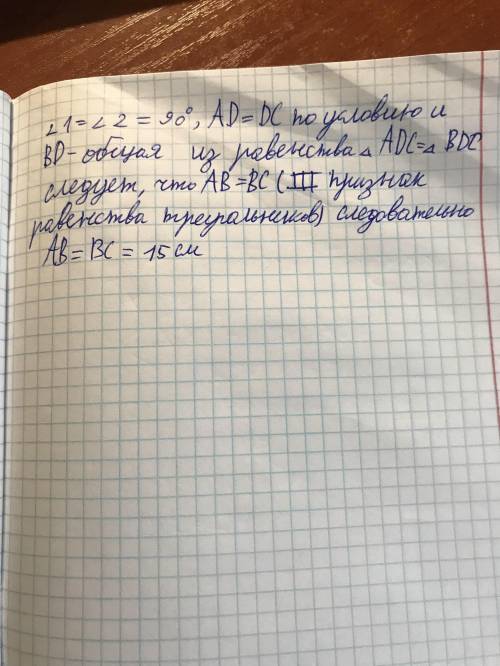 ∠1=∠2 = 90°, AD=DC по условию и
BD-общая из равенства △ ADC=△ BDC
следует, что AB=BC (III признак
равенства треугральников) следовательно
AB= BC = 15 см